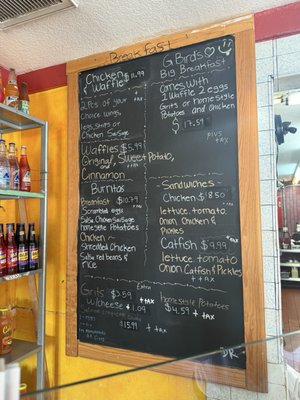 Breakfast
Chicken $11.99
& Waffle + tax
2 Pcs of your
Choice wings,
legs, thighs or
Chicken Sausage
Waffles $5.99
Original, Sweet Potato,
and + tax
Cinnamon
Burritos
Breakfast $10.79
Scrambled eggs + tax
Salsa Chicken Sausage
homestyle Potatoes
Chicken ~
Shredded Chicken
Salsa red beans &
rice
G Birds
Big Breakfast
Comes With
1 Waffle 2 eggs
Grits or homestyle
Potatoes and Chicken
$17.59
plus
+ tax
Sandwiches
Chicken $8.50
lettuce, tomato, + tax
Onion, Chicken &
Pickles
Catfish $9.99
lettuce tomato + tax
Onion Catfish & Pickles
Extra
Grits $3.59 + tax
w/cheese + 1.09
$15.99 + tax
homestyle Potatoes
$4.59 + tax
DR